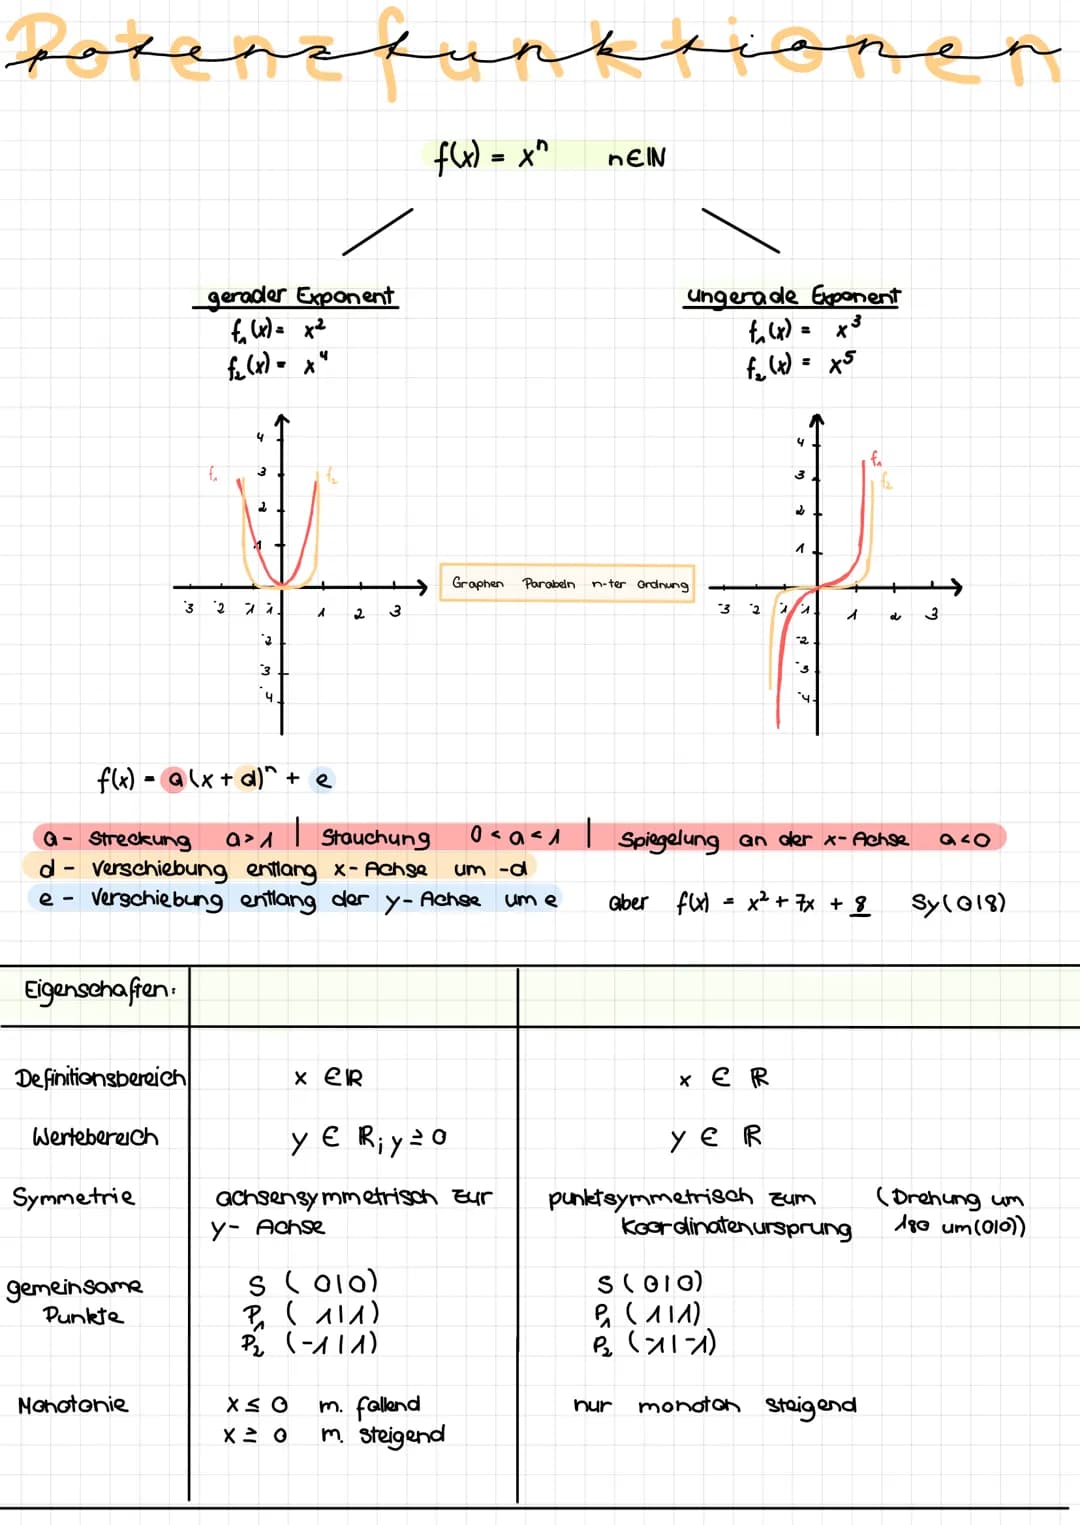 Potenzfunktionen
potenzfunktionen
f(x) = xⁿ n∈ℕ
gerader Exponent
f₁(x) = x²
f₂(x) = x⁴
ungerade Exponent
f₁(x) = x³
f₂(x) = x⁵
4
f₁ 3 f₂
2
1
-3 -2 -1 -1 1 2 3
-2
-3
-4
Graphen Parabeln n-ter Ordnung
4
f₁
3 f₂
2
1
-3 -2 -1 -1 1 2 3
-2
-3
-4
f(x) = a(x + d)ⁿ + e
a - Streckung a>1 | Stauchung 0<a<1 | Spiegelung an der x-Achse a<0
d - Verschiebung entlang x-Achse um -d
e - Verschiebung entlang der y-Achse um e aber f(x) = x² + 7x + 8 Sy(0|8)
Eigenschaften:
Definitionsbereich x ∈ ℝ x ∈ ℝ
Wertebereich y ∈ ℝ; y ≥ 0 y ∈ ℝ
Symmetrie achsensymmetrisch zur punktsymmetrisch zum (Drehung um
y-Achse Koordinatenursprung 180 um (0|0))
gemeinsame S (0|0) S (0|0)
Punkte P₁ (1|1) P₁ (1|1)
P₂ (-1|1) P₂ (-1|-1)
Monotonie x ≤ 0 m. fallend nur monoton steigend
x ≥ 0 m. steigend